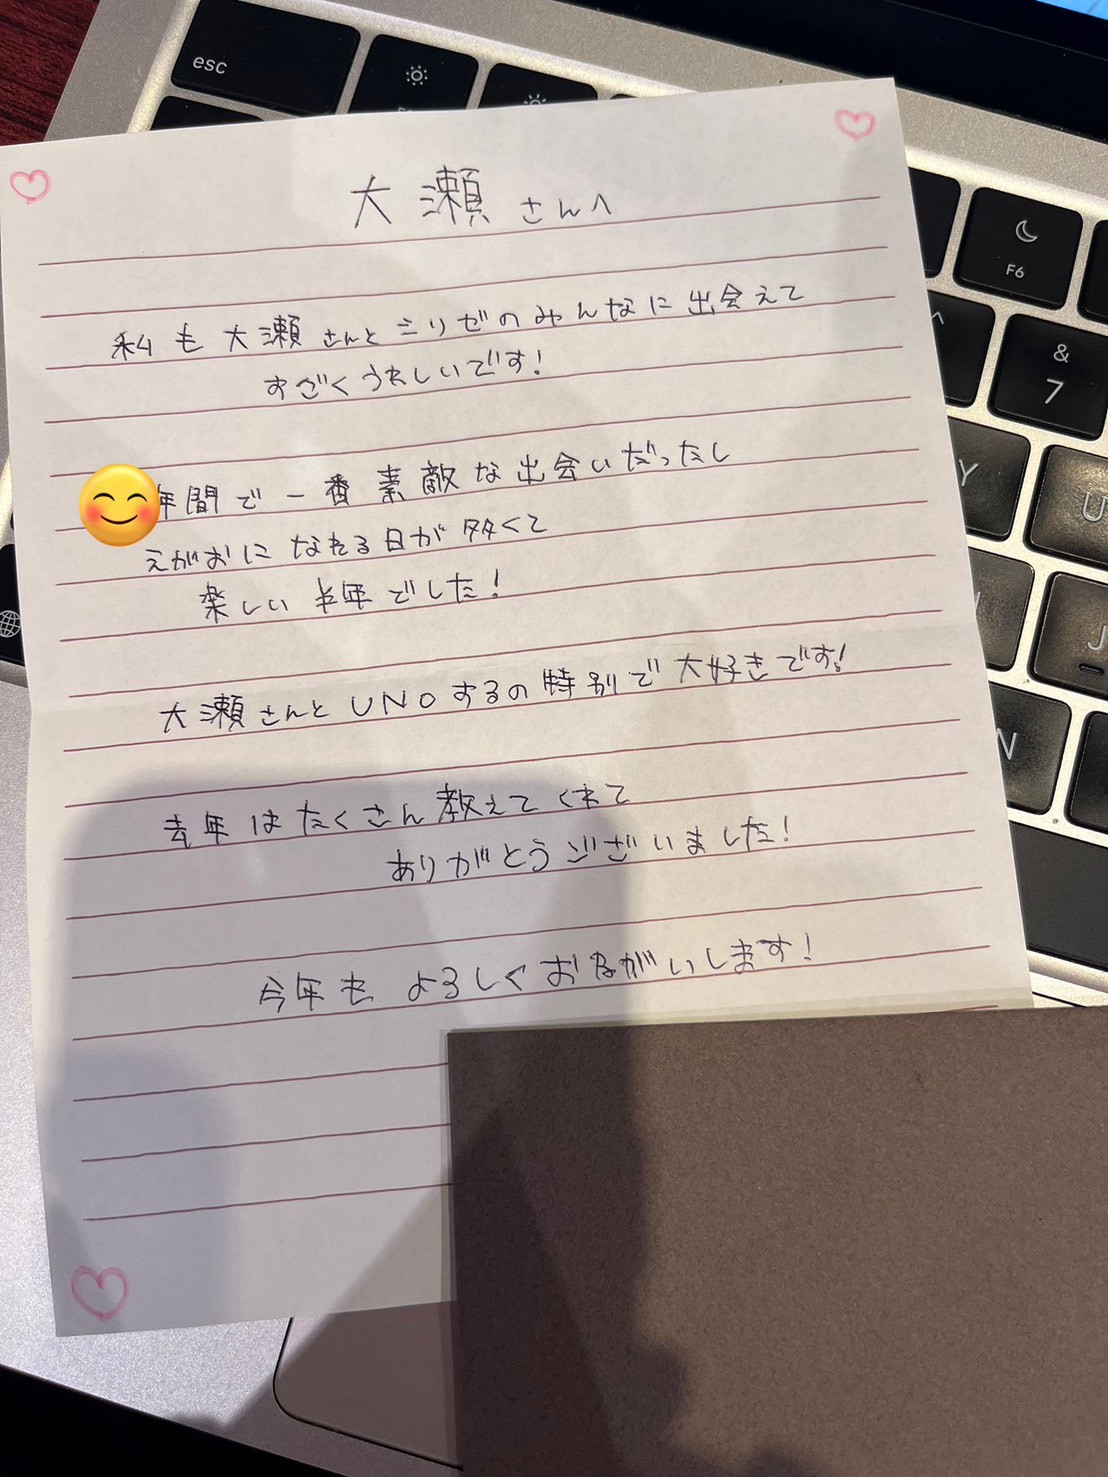 esc
F6
&
7
^
Y
U
J
N
大瀬さんへ
私も大瀬さんとミリゼのみんなに出会えて
すごくうれしいです！
年間で一番素敵な出会いだったし
えがおになれる日が多くて
楽しい半年でした！
大瀬さんとUNOするの特別で大好きです！
去年はたくさん教えてくれて
ありがとうございました！
今年もよろしくおねがいします！